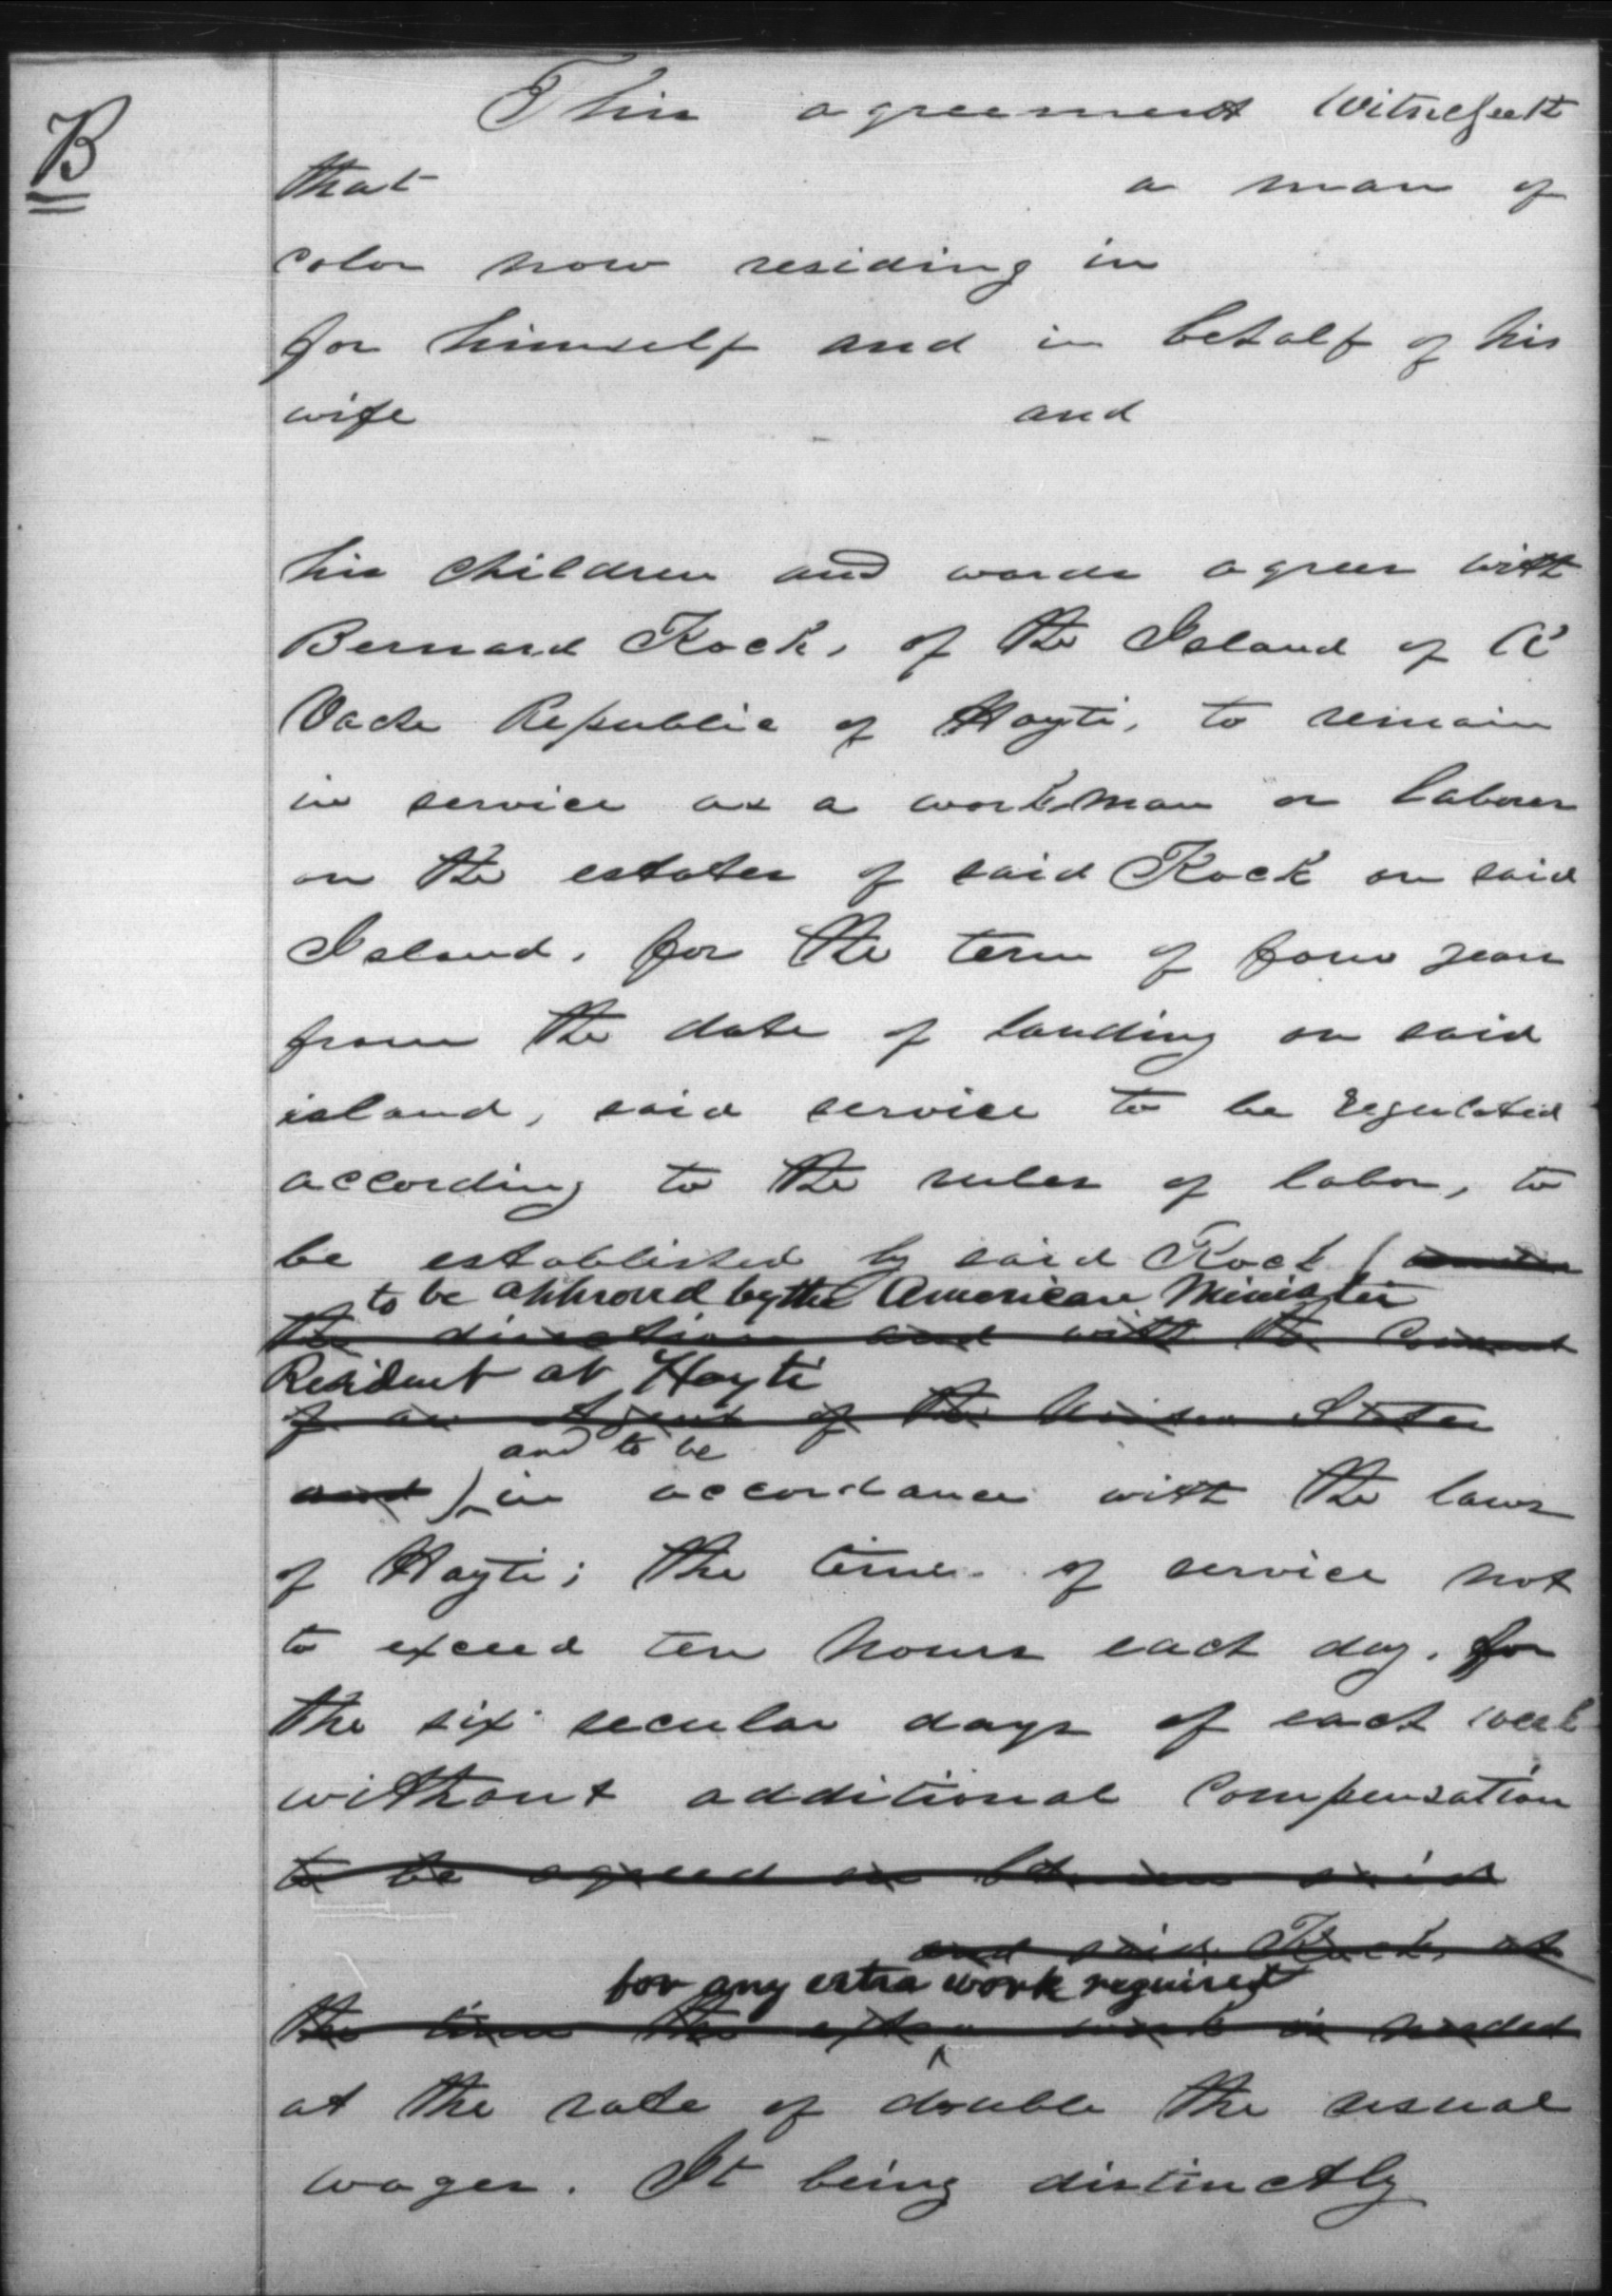 B
This agreement Witnesseth
that a man of
color now residing in
for himself and in behalf of his
wife and
his children and wards agrees with
Bernard Kock, of the Island of A'
Vache Republic of Hayti, to remain
in service as a workman or laborer
on the estates of said Kock on said
Island, for the term of four years
from the date of landing on said
island, said service to be regulated
according to the rules of labor, to
be established by said Kock ( under
to be approved by the American Minister
the direction and with the consent
Resident at Hayti
of an Agent of the United States
and to be
and ) in accordance with the laws
of Hayti; the time of service not
to exceed ten hours each day, for
the six secular days of each week
without additional compensation
to be agreed on between said
and said Kock, at
for any extra work required
the time the extra work is needed
at the rate of double the usual
wages. It being distinctly